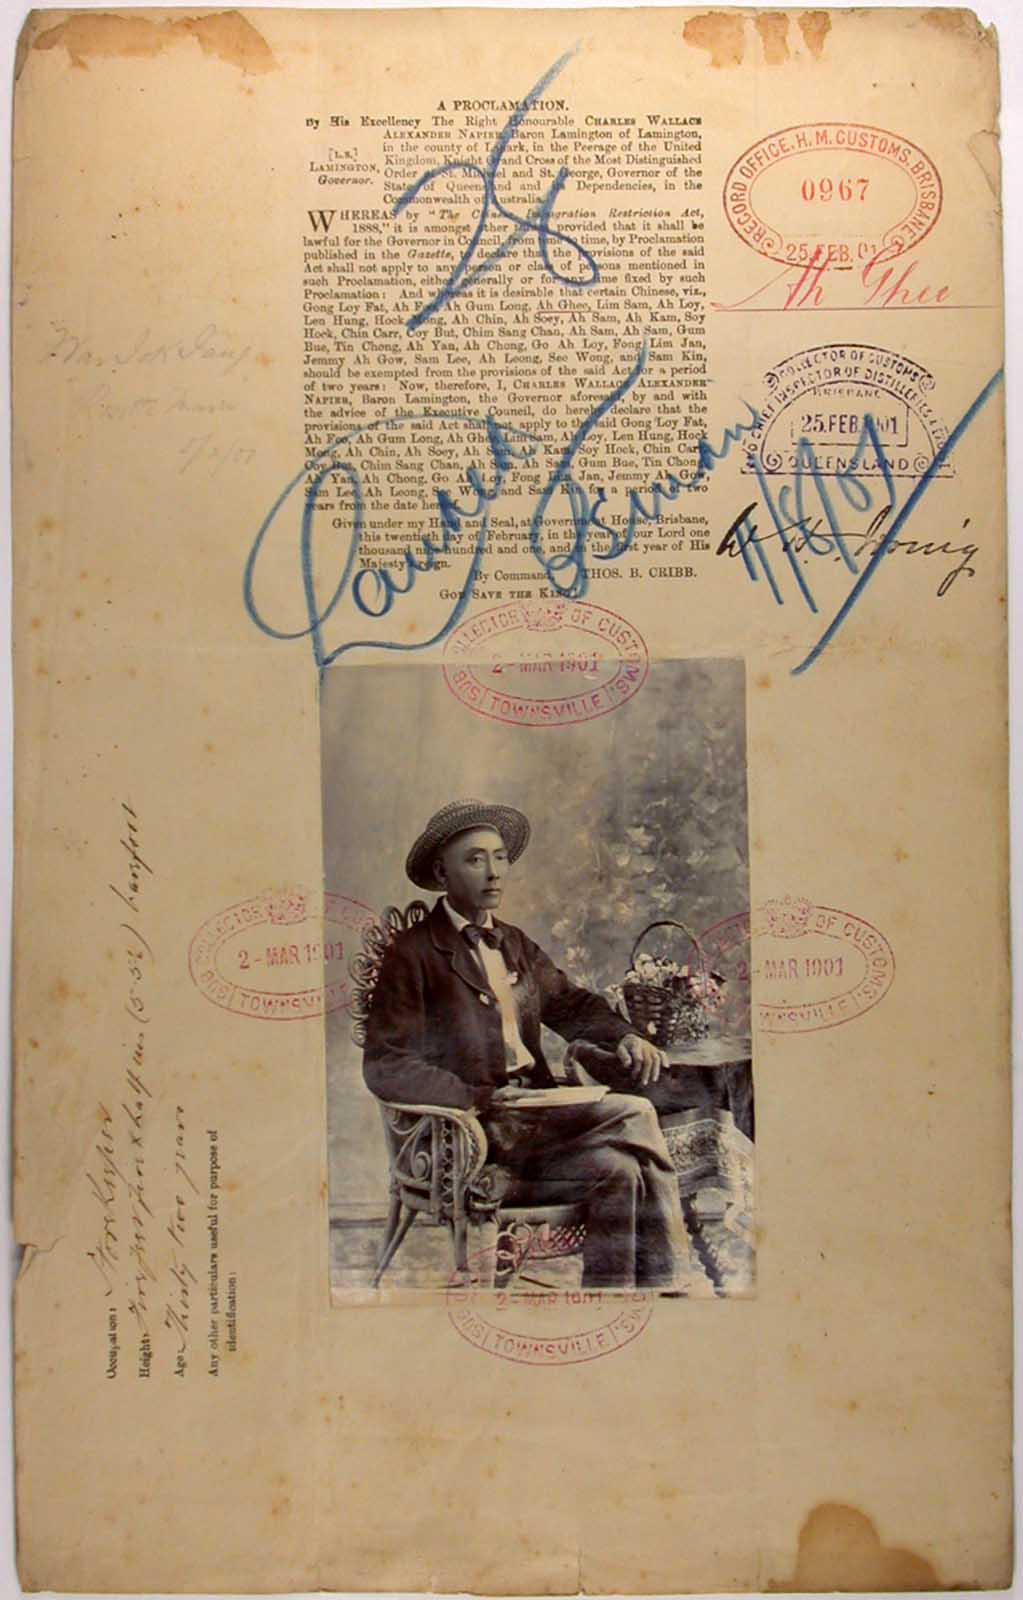 A PROCLAMATION.
By His Excellency The Right Honourable CHARLES WALLACE
ALEXANDER NAPIER, Baron Lamington of Lamington,
in the county of Lanark, in the Peerage of the United
[L.S.]
LAMINGTON,
Governor.
Kingdom, Knight Grand Cross of the Most Distinguished
Order of St. Michael and St. George, Governor of the
State of Queensland and its Dependencies, in the
Commonwealth of Australia.
WHEREAS by "The Chinese Immigration Restriction Act,
1888," it is amongst other things provided that it shall be
lawful for the Governor in Council, from time to time, by Proclamation
published in the Gazette, to declare that the provisions of the said
Act shall not apply to any person or class of persons mentioned in
such Proclamation, either generally or for any time fixed by such
Proclamation: And whereas it is desirable that certain Chinese, viz.,
Gong Loy Fat, Ah Foo, Ah Gum Long, Ah Ghee, Lim Sam, Ah Loy,
Len Hung, Hock Mong, Ah Chin, Ah Soey, Ah Sam, Ah Kam, Soy
Hock, Chin Carr, Coy But, Chim Sang Chan, Ah Sam, Ah Sam, Gum
Bue, Tin Chong, Ah Yan, Ah Chong, Go Ah Loy, Fong Lim Jan,
Jemmy Ah Gow, Sam Lee, Ah Leong, See Wong, and Sam Kin,
should be exempted from the provisions of the said Act for a period
of two years: Now, therefore, I, CHARLES WALLACE ALEXANDER
NAPIER, Baron Lamington, the Governor aforesaid, by and with
the advice of the Executive Council, do hereby declare that the
provisions of the said Act shall not apply to the said Gong Loy Fat,
Ah Foo, Ah Gum Long, Ah Ghee, Lim Sam, Ah Loy, Len Hung, Hock
Mong, Ah Chin, Ah Soey, Ah Sam, Ah Kam, Soy Hock, Chin Carr,
Coy But, Chim Sang Chan, Ah Sam, Ah Sam, Gum Bue, Tin Chong,
Ah Yan, Ah Chong, Go Ah Loy, Fong Lim Jan, Jemmy Ah Gow,
Sam Lee, Ah Leong, See Wong, and Sam Kin for a period of two
years from the date hereof.
Given under my Hand and Seal, at Government House, Brisbane,
this twentieth day of February, in the year of our Lord one
thousand nine hundred and one, and in the first year of His
Majesty's reign.
By Command, THOS. B. CRIBB.
GOD SAVE THE KING!
28
RECORD OFFICE, H. M. CUSTOMS, BRISBANE
0967
25.FEB.01
Ah Ghee
COLLECTOR OF CUSTOMS
AND CHIEF INSPECTOR OF DISTILLERIES
BRISBANE
25.FEB.1901
QUEENSLAND
11/8/01
COLLECTOR OF CUSTOMS
2-MAR 1901
SUB TOWNSVILLE
COLLECTOR OF CUSTOMS
2-MAR 1901
SUB TOWNSVILLE
COLLECTOR OF CUSTOMS
2-MAR 1901
TOWNSVILLE
2-MAR 1901
SUB TOWNSVILLE
Occupation: Storekeeper
Height: (5-5½) barefoot
Age: Thirty two years
Any other particulars useful for purpose of
identification: